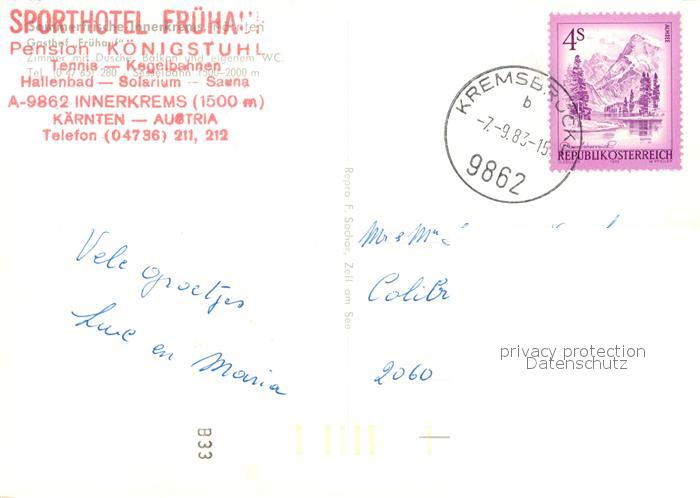 SPORTHOTEL FRÜHAUF
Pension KÖNIGSTUHL
Tennis — Kegelbahnen
Hallenbad — Solarium — Sauna
A-9862 INNERKREMS (1500 m)
KÄRNTEN — AUSTRIA
Telefon (04736) 211, 212
Sommerfrische Innerkrems, Kärnten
Gasthof „Frühauf“
Zimmer mit Dusche, Balkon und eigenem WC.
Tel. (0 47 65) 280
1500–2000 m
4S
ALMSEE
REPUBLIK ÖSTERREICH
KREMSBRÜCKE
b
-7.-9.83-15
9862
Repro F. Sochor, Zell am See
Vele groetjes
Luc en Maria
Mr & Mme
Colibr
2060
privacy protection
Datenschutz
B33